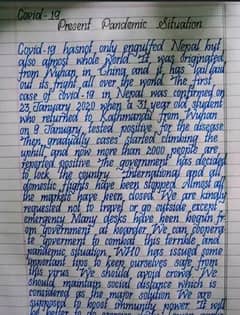 Covid-19
Present Pandemic Situation
Covid-19 hasnot only engulfed Nepal but
also almost whole world. It was originated
from Wuhan, in China and it has laid
out its fright all over the world. The first
case of covid-19 in Nepal was confirmed on
23 January 2020 when a 31 year old student
who returned to Kathmandu from Wuhan
on 9 January, tested positive for the disease
Then gradually cases started climbing the
uphill, and now more than 2000 people are
reported positive. The government has decided
to lock the country. International and all
domestic flights have been stopped. Almost all
the markets have been closed. We are kindly
requested not to travel or go outside, except
emergency. Many desks have been begun from
government at boarder. We can cooperate
government to combat this terrible and
pandemic situation. WHO has issued some
important tips to keep ourselves safe from
this virus. We should avoid crowd. We
should maintain social distance which is
considered as the major solution. We are
supposed to boost immunity power. It will
be better to do